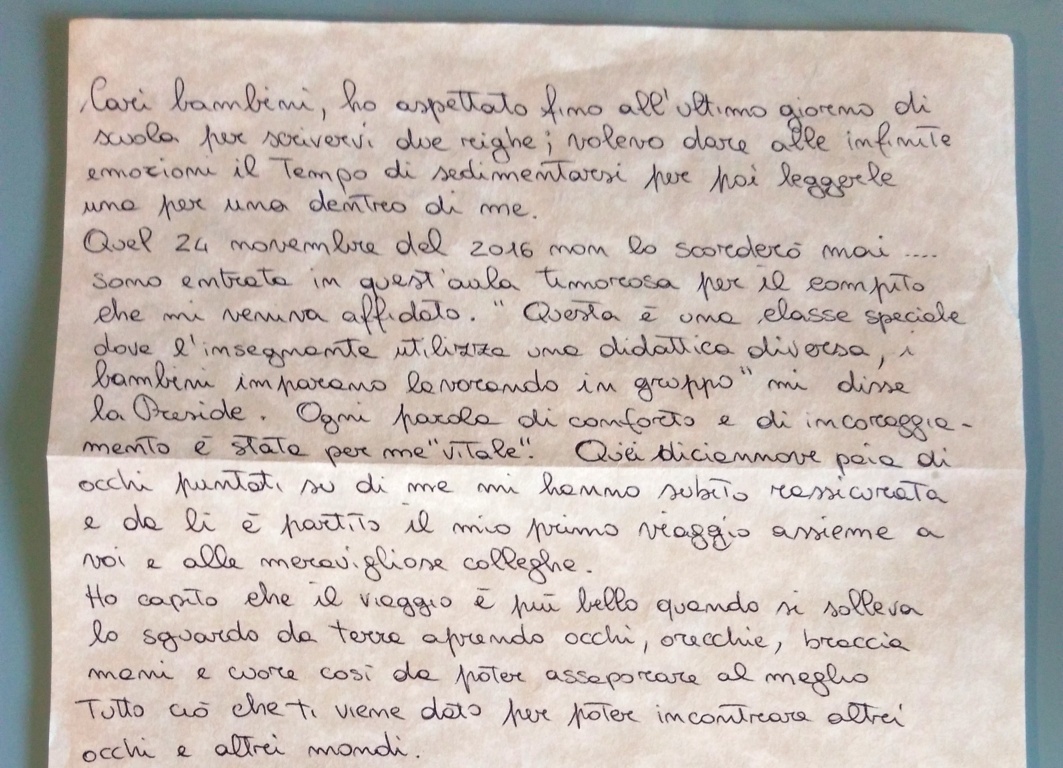 Cari bambini, ho aspettato fino all'ultimo giorno di
scuola per scrivervi due righe; volevo dare alle infinite
emozioni il tempo di sedimentarsi per poi leggerle
una per una dentro di me.
Quel 24 novembre del 2016 non lo scorderò mai ....
sono entrata in quest'aula timorosa per il compito
che mi veniva affidato. "Questa è una classe speciale
dove l'insegnante utilizza una didattica diversa, i
bambini imparano lavorando in gruppo" mi disse
la Preside. Ogni parola di conforto e di incoraggia-
mento è stata per me "vitale". Quei diciannove paia di
occhi puntati su di me mi hanno subito rassicurata
e da lì è partito il mio primo viaggio assieme a
voi e alle meravigliose colleghe.
Ho capito che il viaggio è più bello quando si solleva
lo sguardo da terra aprendo occhi, orecchie, braccia
mani e cuore così da poter assaporare al meglio
Tutto ciò che ti viene dato per poter incontrare altri
occhi e altri mondi.